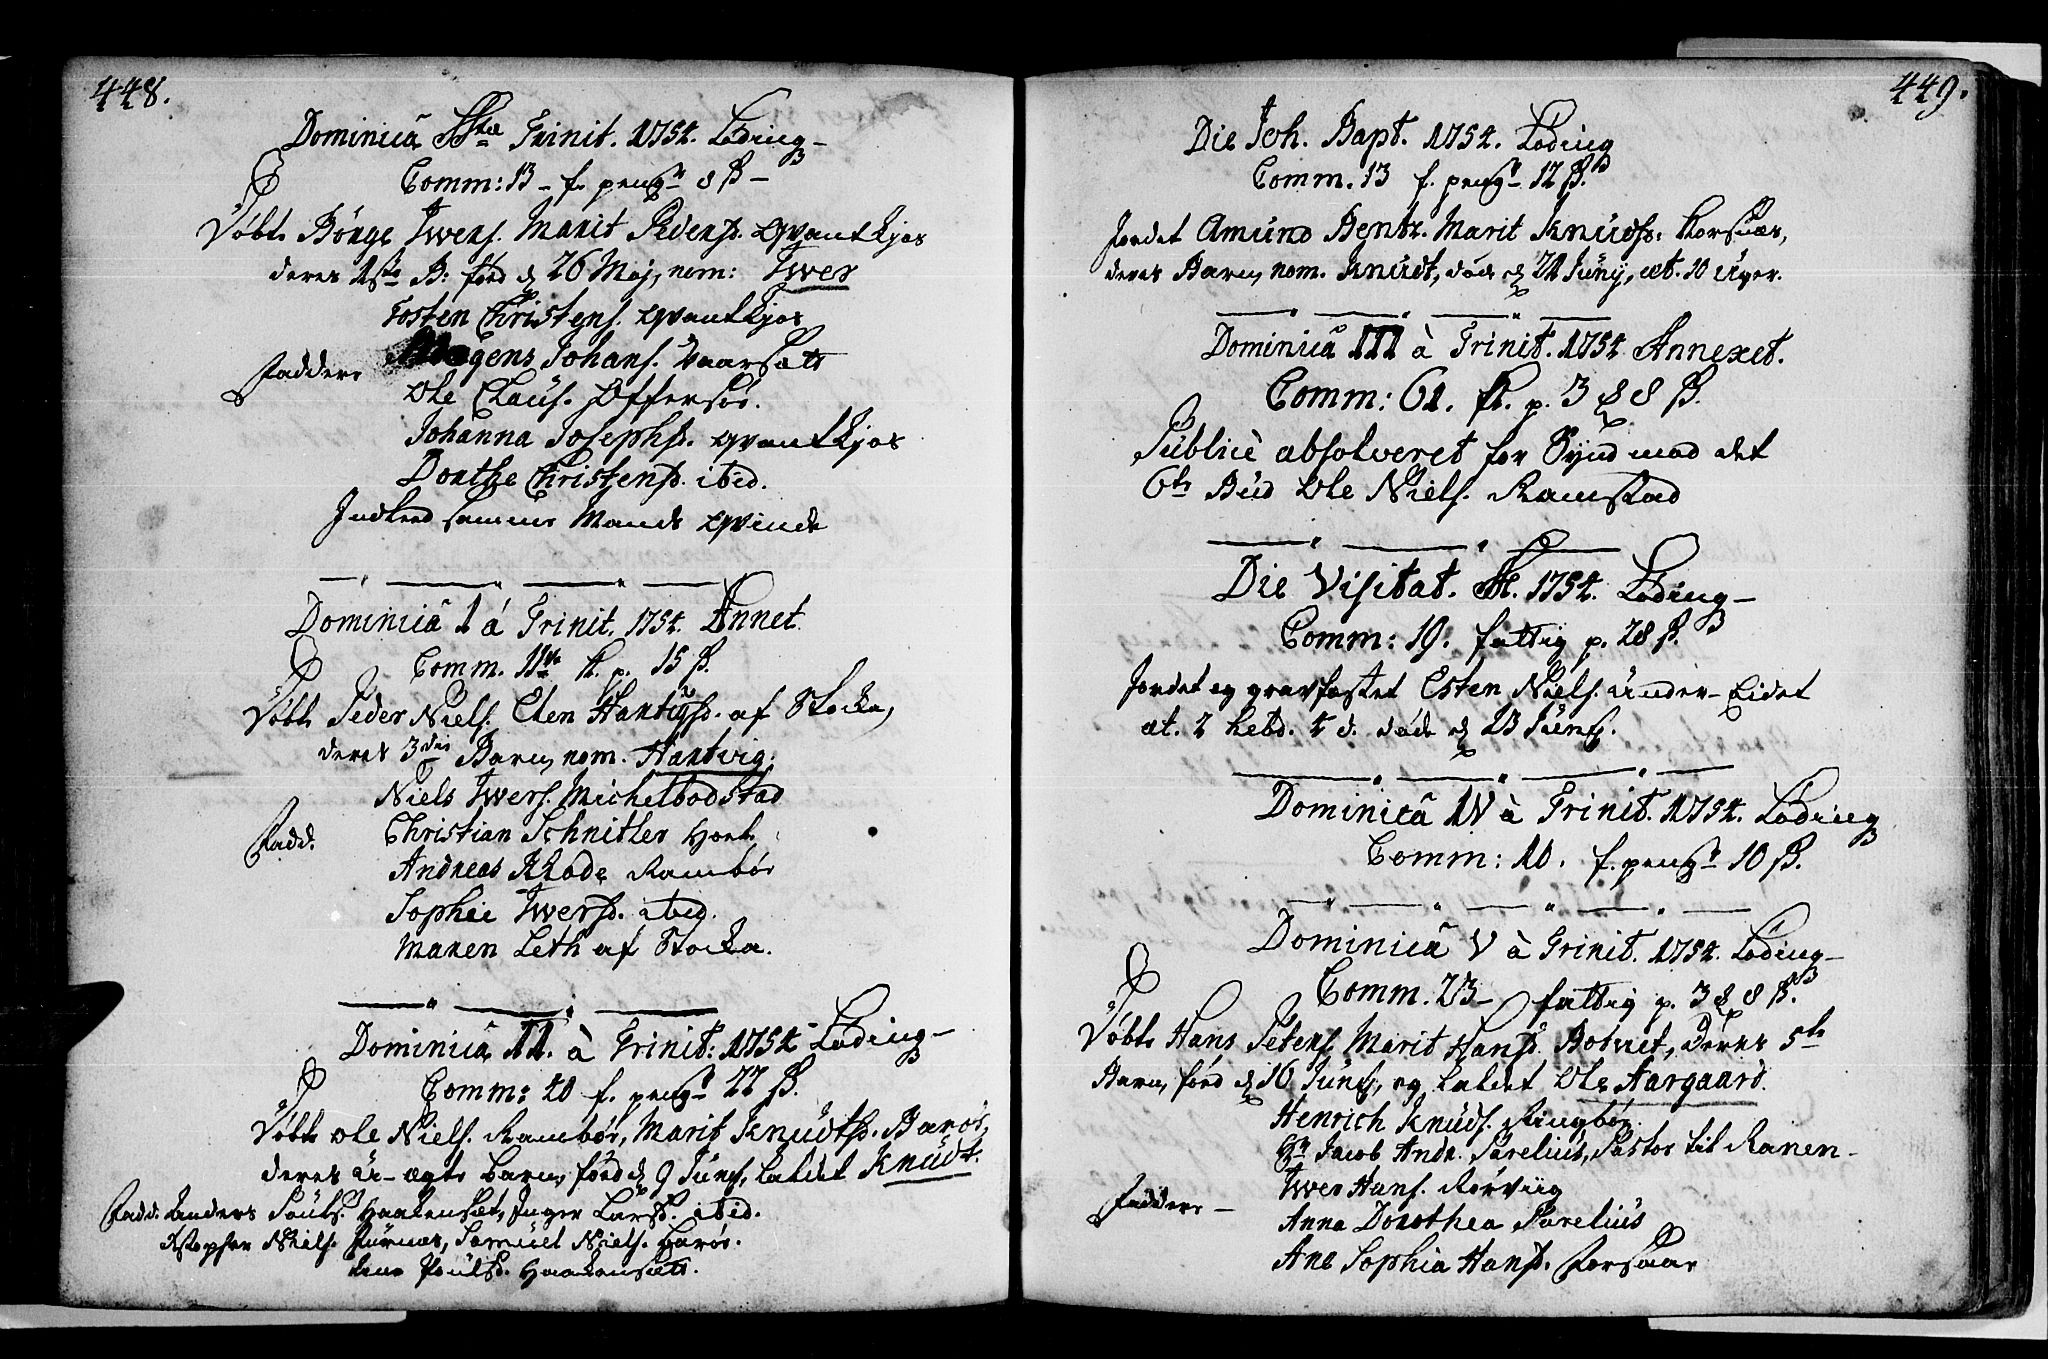 448.
Dominicâ SStæ Trinit. 1754. Löding_
Comm: 13_ f. peng_ 8 ß_
Döbt Börge Iwers. Marit Peders. Qvantkjos
deres 1ste B: förd d 26 Maj, nom: Iwer
Tosten Christens. Qvantkjos
Mogens Johans. Vaarsæt
Faddere
Ole Claus. Offersøe.
Johanna Josephsd. Qvantkjos
Dorthe Christensd. ibid.
Indleed samme Mands Qvinde
Dominicâ 1 á Trinit. 1754. Annet
Comm. 11 fl. p. 15 ß.
Döbt Peder Niels. Elen Hartvigsd. af Stocka,
deres 3die Barn, nom. Hartvig.
Niels Iwers. Michelbodstad
Fadd.
Christian Schnitler Hoel
Andreas Rhode Ramböe
Sophie Iwersd. ibid.
Maren Leth af Stocka.
Dominicâ II. à Trinit: 1754 Löding_
Comm: 40 f. peng_ 22 ß.
Döbt Ole Niels. Ramböe, Marit Knudtsd. Baröe,
deres u-ægte barn, förd d 9 Junj, kaldet Knudt.
Fadd. Anders Pouls. Haakensæt, Inger Larsd. ibid.
Kstopher Niels. Furnæs, Samuel Niels. Baröe.
Lene Poulsd. Haakensæt.
449.
Die Joh. Bapt. 1754. Löding
Comm. 13 f. peng_ 12 ß.
Jordet Amund Bentz. Marit Knudsd: Korsnæs,
deres Barn, nom. Knudt, döde d 21 Junij, æt. 10 Uger.
Dominicâ III à Trinit. 1754 Annexet.
Comm: 61. fl. p. 3 8 ß.
Publicè absolveret for Synd mod det
6te Bud Ole Niels. Ramstad
Die Visitat. M. 1754. Löding_
Comm: 19. fattig p. 28 ß.
Jordet og gravfæstet Esten Niels. under-Eidet
æt. 2 hebd. 4 d. döde d 23 Junj.
Dominicâ IV à Trinit. 1754. Löding
Comm: 10. f. peng_ 10 ß.
Dominicâ V à Trinit. 1754. Löding_
Comm. 23_ fattig p. 3 8 ß.
Döbt Hans Peters, Marit Hansd. Botnet, deres 5te
Barn, förd d 16 Junj, og kaldet Ole Aargaard.
Henrich Knuds. Ringböe
Hr Jacob Andr. Parelius, Pastor til Ranen_
Iwer Hans. Rörviig
Faddere_
Anna Dorothea Parelius
Ane Sophia Hansd. Forsaae